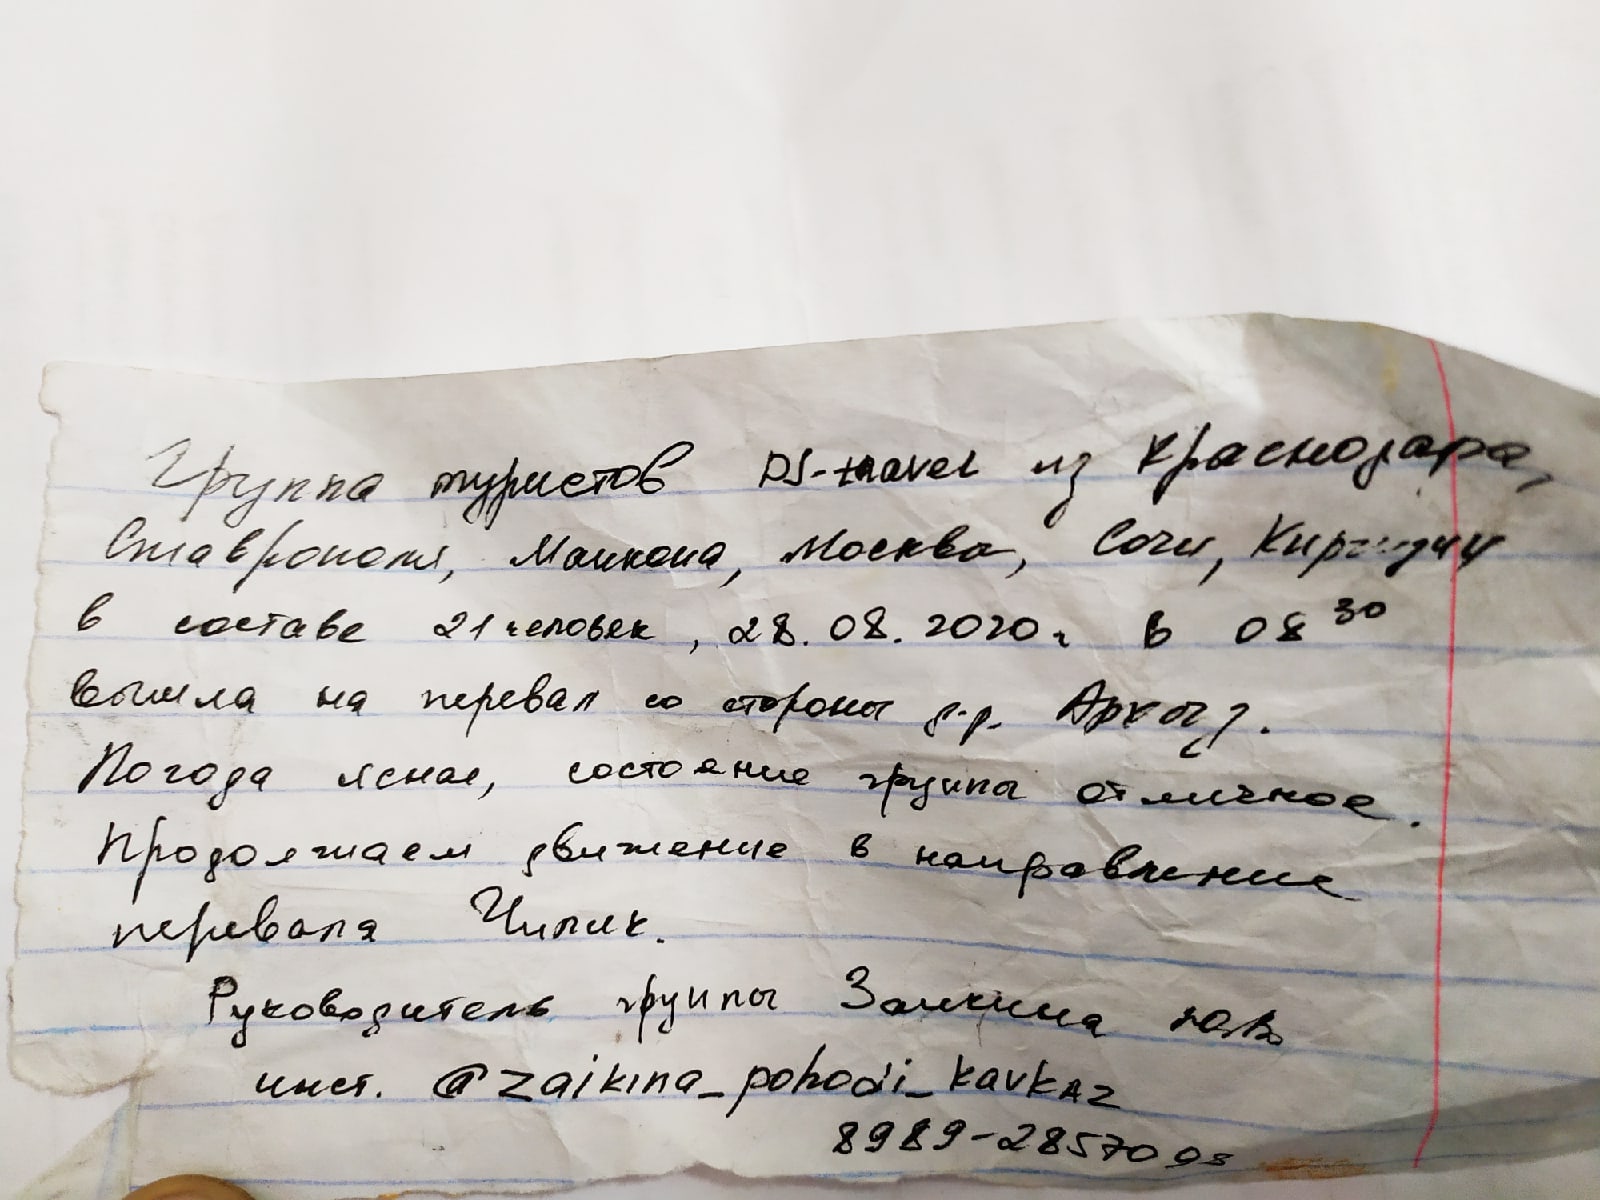 Группа туристов DS-travel из Краснодара,
Ставрополя, Майкопа, Москва, Сочи, Киргизии
в составе 21 человек, 28.08.2020г в 08 30
вышла на перевал со стороны д.р. Архыз.
Погода ясная, состояние группы отличное.
Продолжаем движение в направление
перевала Чилик.
Руководитель группы Заикина
инст. @zaikina_pohodi_kavkaz
8989-2857098